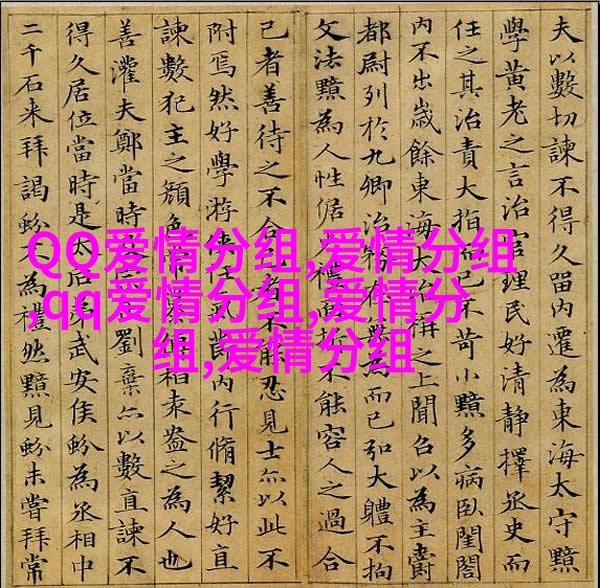 夫以數切諫不得久留內遷為東海太守黯
學黃老之言治官理民好清靜擇丞史而
任之其治責大指而已不苛小黯多病臥閨閤
內不出歲餘東海大治稱之上聞召以為主爵
都尉列於九卿治務在無為而已弘大體不拘
文法黯為人性倨禮折不能容人之過合
己者善待之不合己者不能忍見士亦以此不
附焉然好學游俠任氣節內行脩絜好直
諫數犯主之顏色柏袁盎之為人也
善灌夫鄭當時劉棄亦以數直諫不
得久居位當時是太后弟武安侯蚡為丞相中
二千石來拜謁蚡不為禮然黯見蚡未嘗拜常
QQ爱情分组,爱情分组
,qq爱情分组,爱情分
组,爱情分组